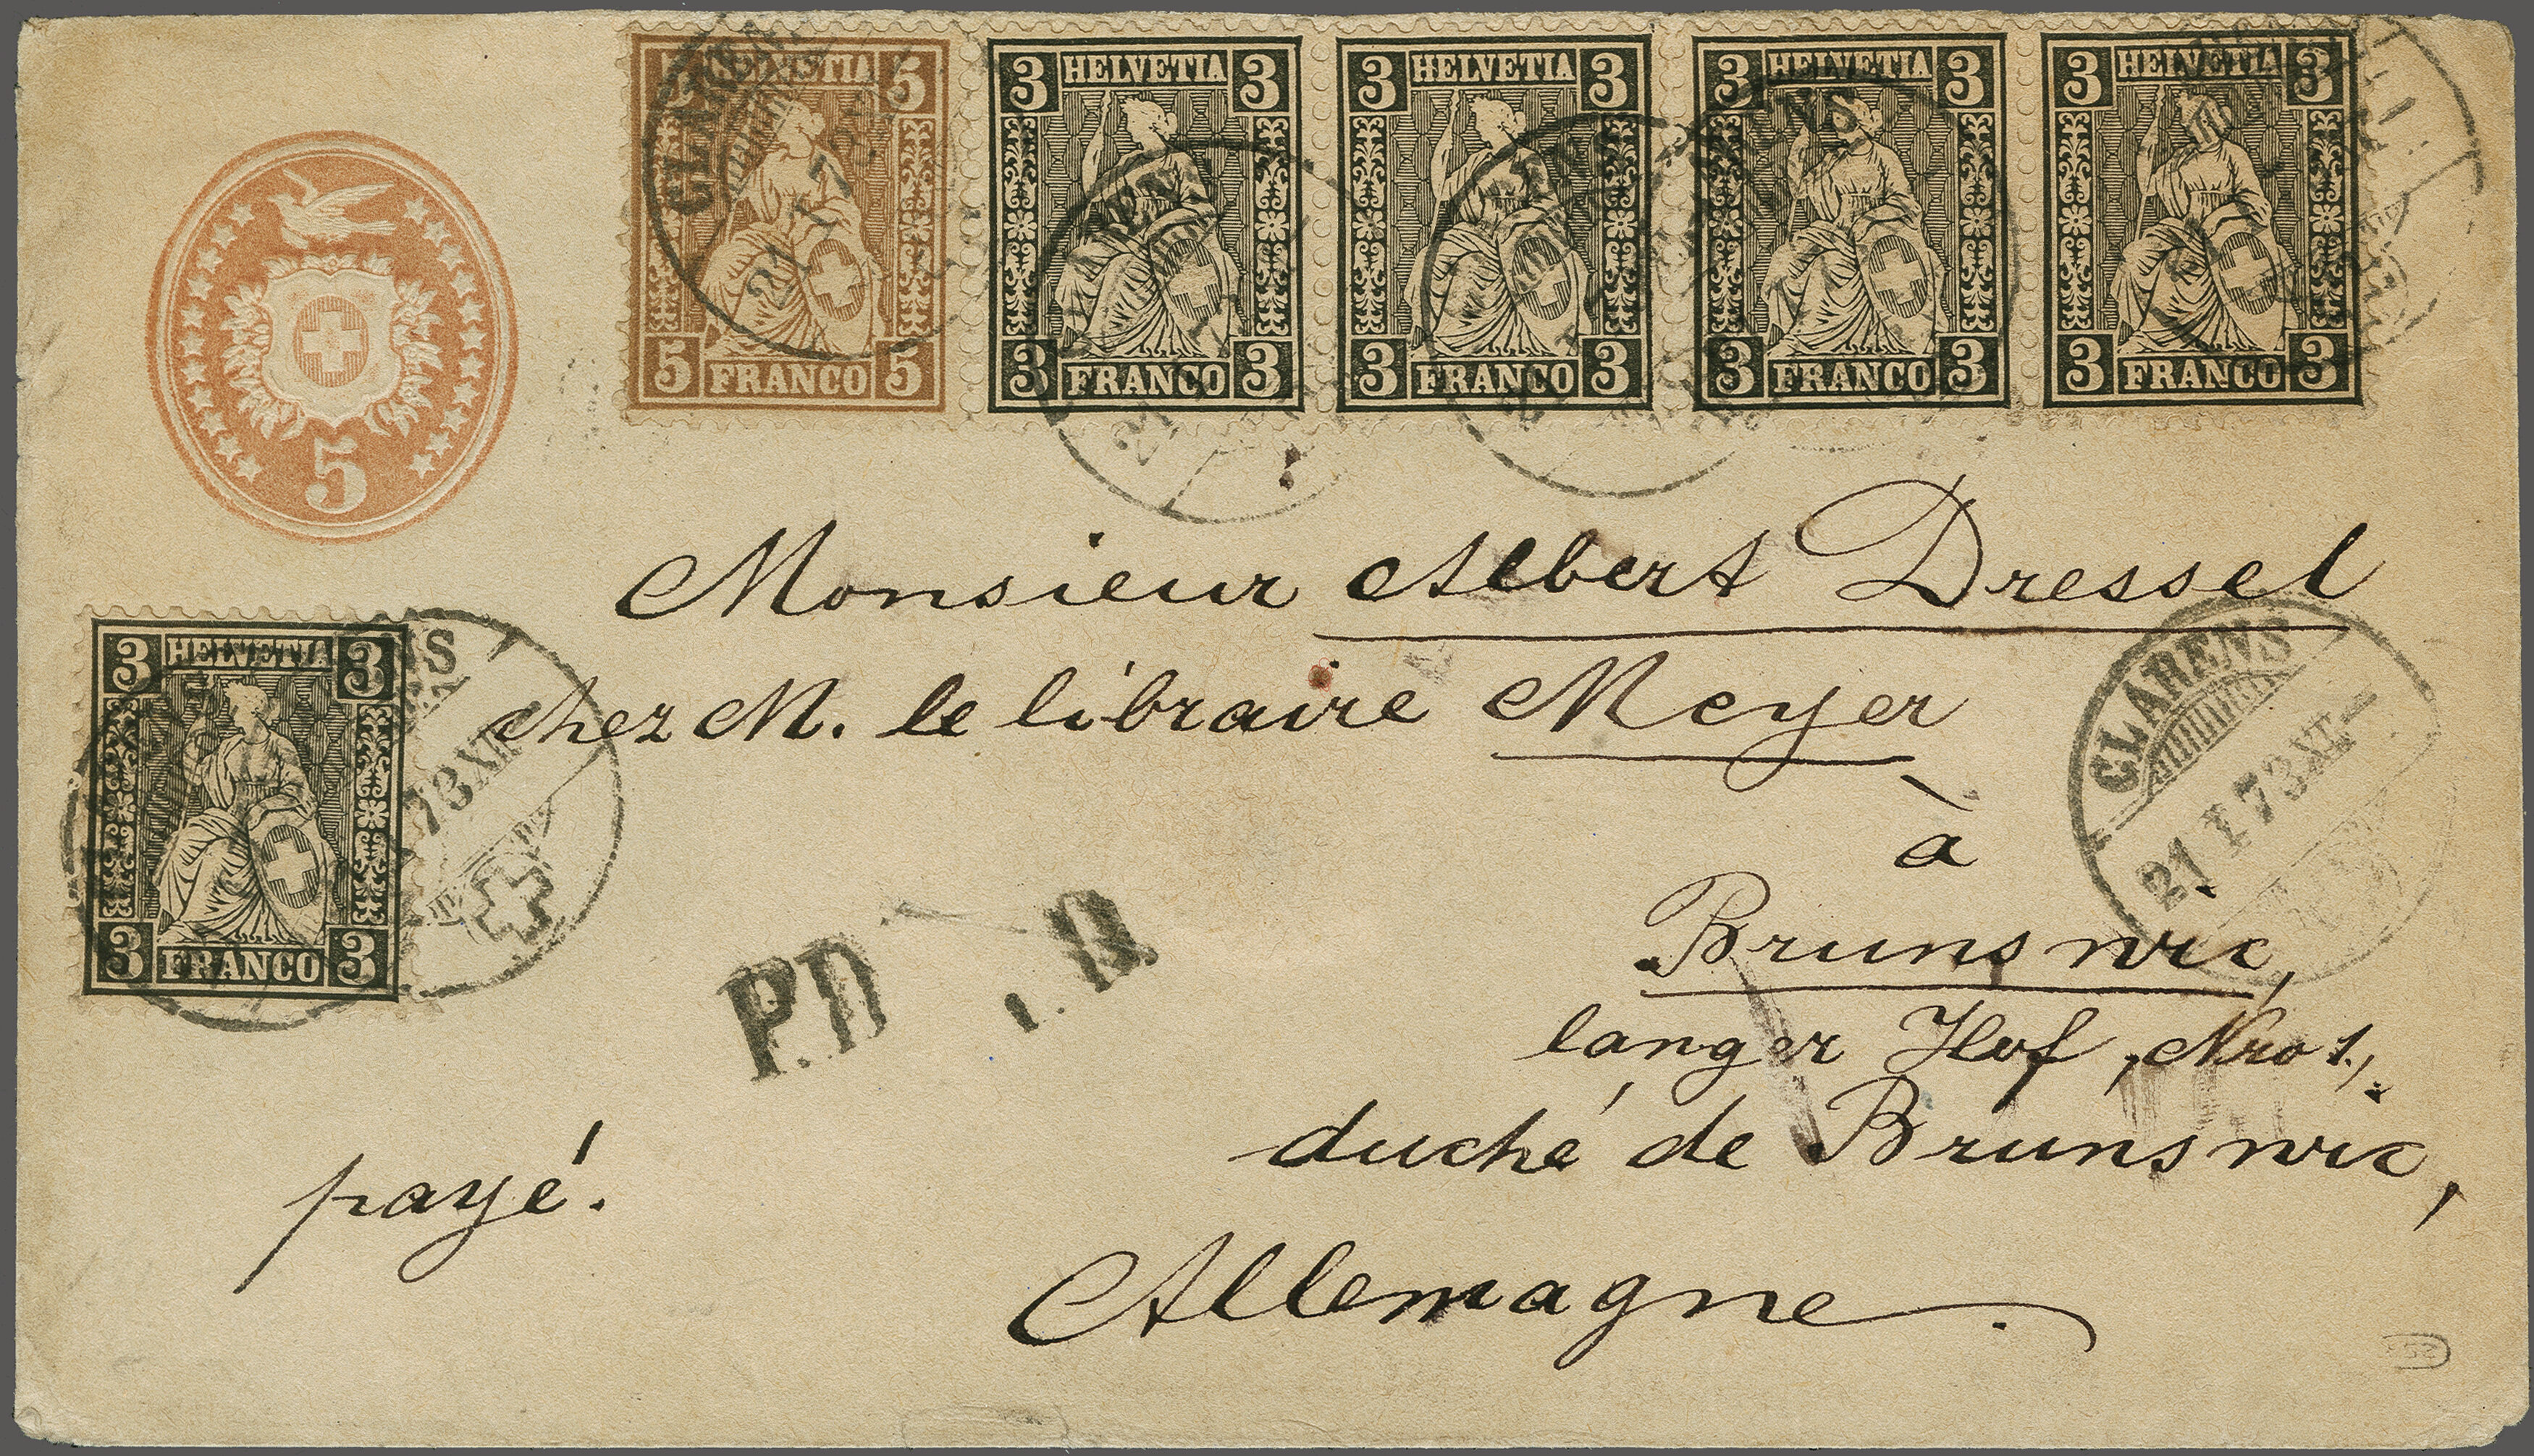 5 HELVETIA 5
5 FRANCO 5
3 HELVETIA 3
3 FRANCO 3
3 HELVETIA 3
3 FRANCO 3
3 HELVETIA 3
3 FRANCO 3
3 HELVETIA 3
3 FRANCO 3
5
Monsieur Albert Dressel
chez M. le libraire Meyer
à
Brunswic,
langer Hof, Nro 1.,
duché de Brunswic,
Allemagne.
3 HELVETIA 3
3 FRANCO 3
73 XII
CLARENS
21 I 73 XI–
P.D
payé.